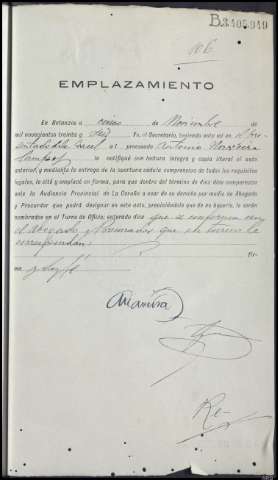 B.3405.949
106
EMPLAZAMIENTO
En Betanzos a cinco de Noviembre de
mil novecientos treinta y seis Yo, el Secretario, teniendo ante mi en el
al procesado Antonio
le notifiqué con lectura íntegra y copia literal el auto
anterior, y mediante la entrega de la oportuna cédula comprensiva de todos los requisitos
legales, le cité y emplacé en forma, para que dentro del término de diez días comparezca
ante la Audiencia Provincial de La Coruña a usar de su derecho por medio de Abogado
y Procurador que podrá designar en este acto, previniéndole que de no hacerlo, le serán
nombrados en el Turno de Oficio, enterado dice que se conforma con
el Abogado y Procurador que en turno le
correspondan; fir-
ma y doy fé